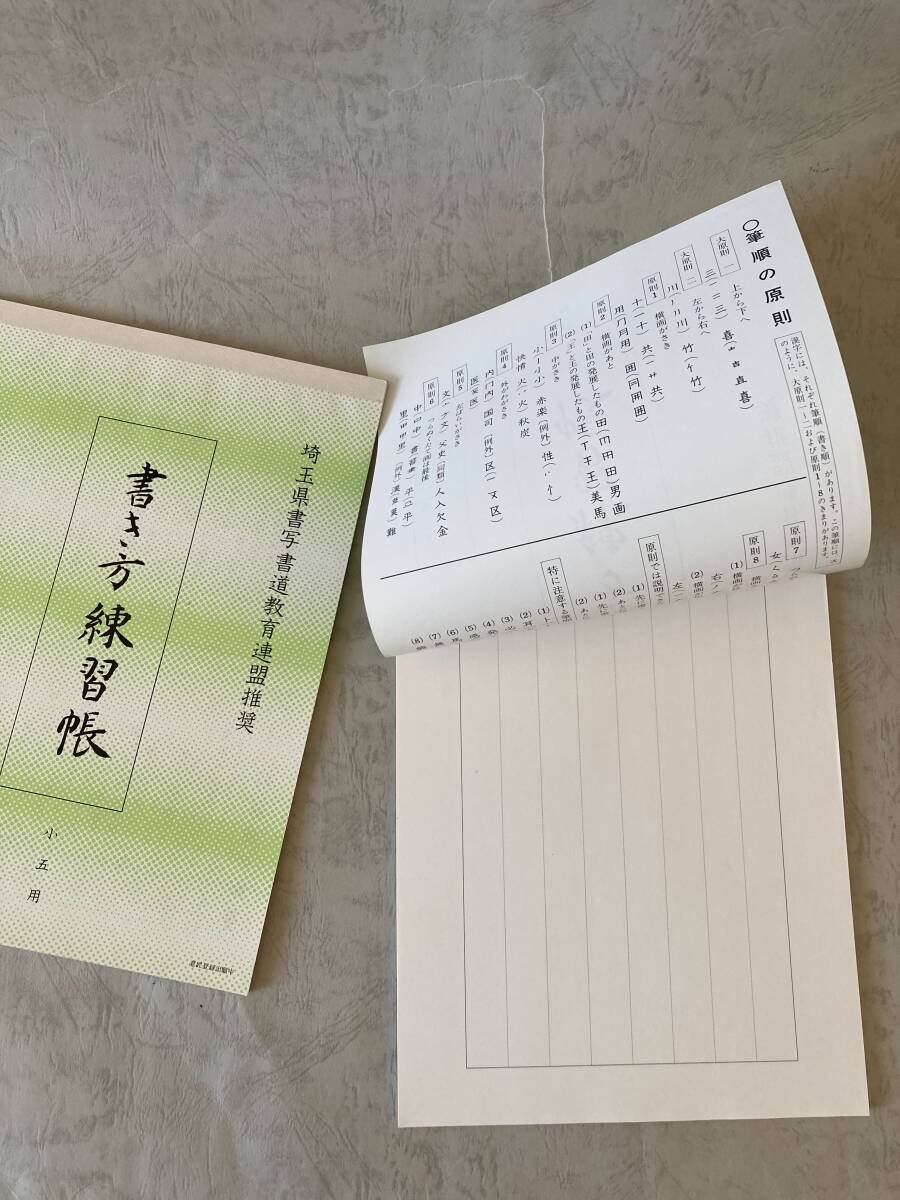 埼玉県書写書道教育連盟推奨
書き方練習帳
小五用
〇筆順の原則
漢字には、それぞれ筆順(書き順)があります。この筆順には、次
のように、大原則一〜二および原則1〜8のきまりがあります。
大原則一 上から下へ
三(一二三) 喜(士吉直喜)
大原則二 左から右へ
川(丿丿川) 竹(ケ竹)
原則1 横画がさき
十(一十) 共(一サ共)
用(冂月用) 囲(冂囲囲)
原則2 横画があと
(1)「田」と田の発展したもの 田(冂田田) 男 画
(2)「王」と王の発展したもの 王(丅干王) 美 馬
原則3 中がさき
小(亅小小) 赤 楽 (例外) 性(丶丶忄)
快 情 火(丶丷火) 秋 炭
原則4 外がわがさき
内(冂内) 国 司 (例外) 区(一ヌ区)
医(矢医)
原則5 左ばらいがさき
文(亠ナ文) 父 史 (同類) 人 入 欠 金
原則6 つらぬくたて画は最後
中(口中) 書 平(平)
里(甲里) (例外) 漢 難
原則7
原則8
(1) 横画が
(2) 横画が
原則では説明でき
(1) 先に
(2) あと
(1) 先に
(2) あと
特に注意する筆順
(1)
(2)
(3) 必
(4) 発
(5)
(6) 馬
(7) 無
(8)